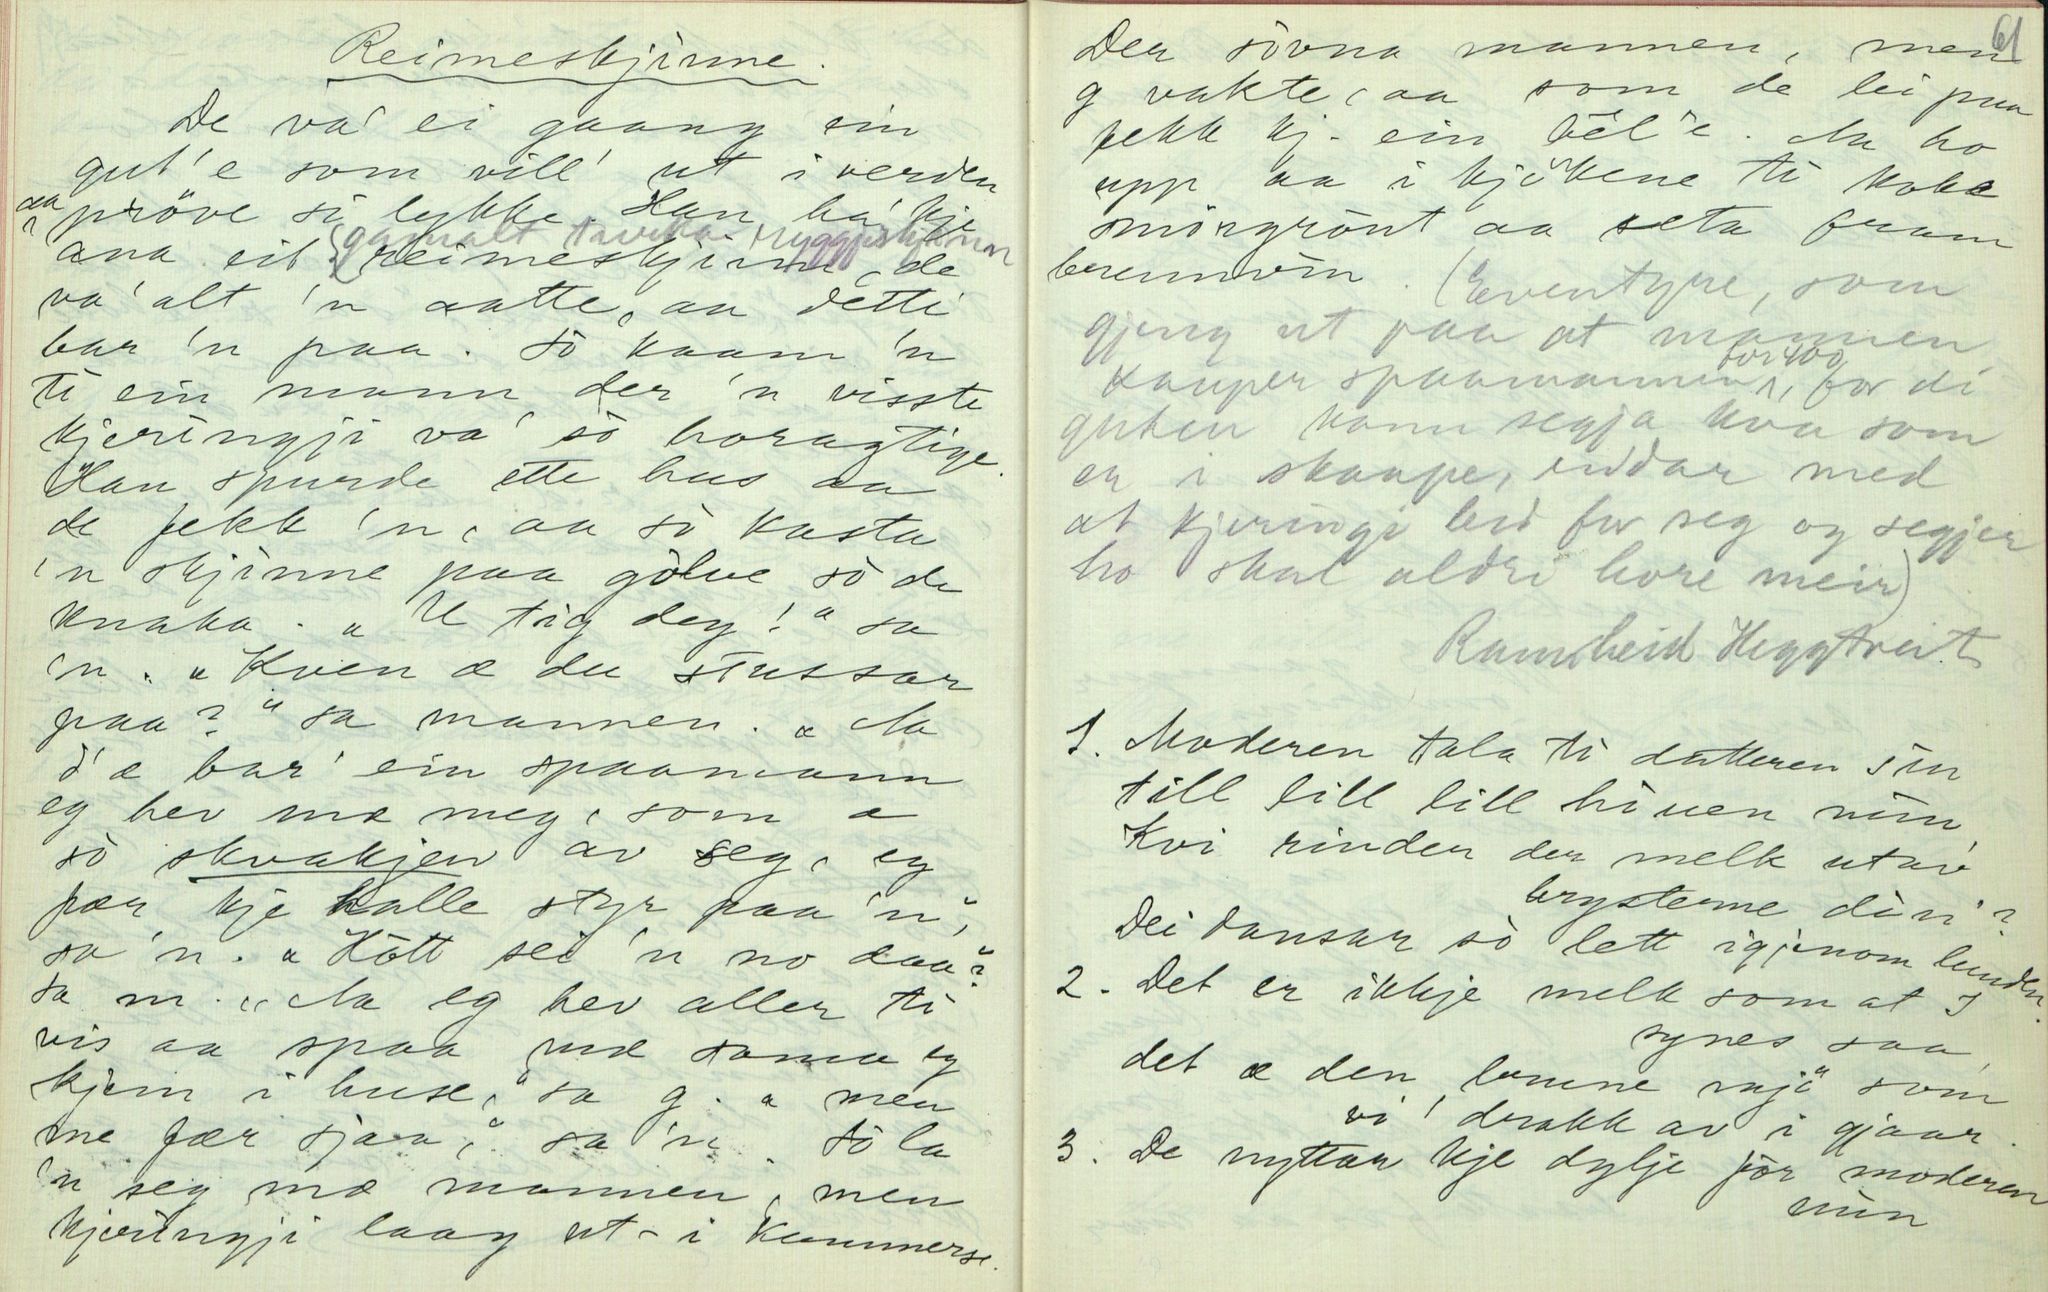 Reimeskjinne.
De va' ei gaang ein
gut'e som vill' ut i verden
aa pröve si lykke. Han ha' kje
gamalt turka ryggjeskjinn
ana eit reimeskjinn, de
va' alt 'n aatte, aa detti
bar 'n paa. Sò kaam 'n
ti ein mann der 'n visste
kjeringji va' sò horagtige.
Han spurde ette hus aa
de fekk 'n, aa sò kasta
'n skjinne paa gölve sò de
knaka. "U tig deg!" sa
'n. "Kven æ du stussar
paa?" sa mannen. "Aa
d'æ bar' ein spaamann
eg hev mæ meg, som æ
sò skvakjen av seg, eg
fær kje halle styr paa 'n",
sa 'n. "Kòtt sei 'n no daa"?
sa m. "Aa eg hev aller ti
vis aa spaa mæ sama eg
kjem i huse," sa g. "men
me fær sjaa," sa 'n. Sò la
'n seg mæ mannen, men
kjeringji laag ut- i kammerse.
61
Der sòvna mannen, men
g vakte, aa som de lei paa
fekk kj. ein bel'e. Aa ho
upp aa i kjökene ti koka
smörgrönt aa seta fram
brennvin. (Eventyre, som
gjeng ut paa at mannen
kauper spaamannen for 400, for di
guten kann segja kva som
er i skaape, endar med
at kjeringi beð for seg og segjer
ho skal aldri hore meir)
Ramsheid Heggtveit
1. Moderen tala ti datteren sin
till lill lill hi uen min
Kvi rinder der melk utav
brysterne din'?
Dei dansar sò lett igjenom lunden.
2. Det er ikkje melk som at I
synes saa,
det æ den brune mjö" som
vi' drakk av i gjaar.
3. De nyttar kje dylje för moderen
min